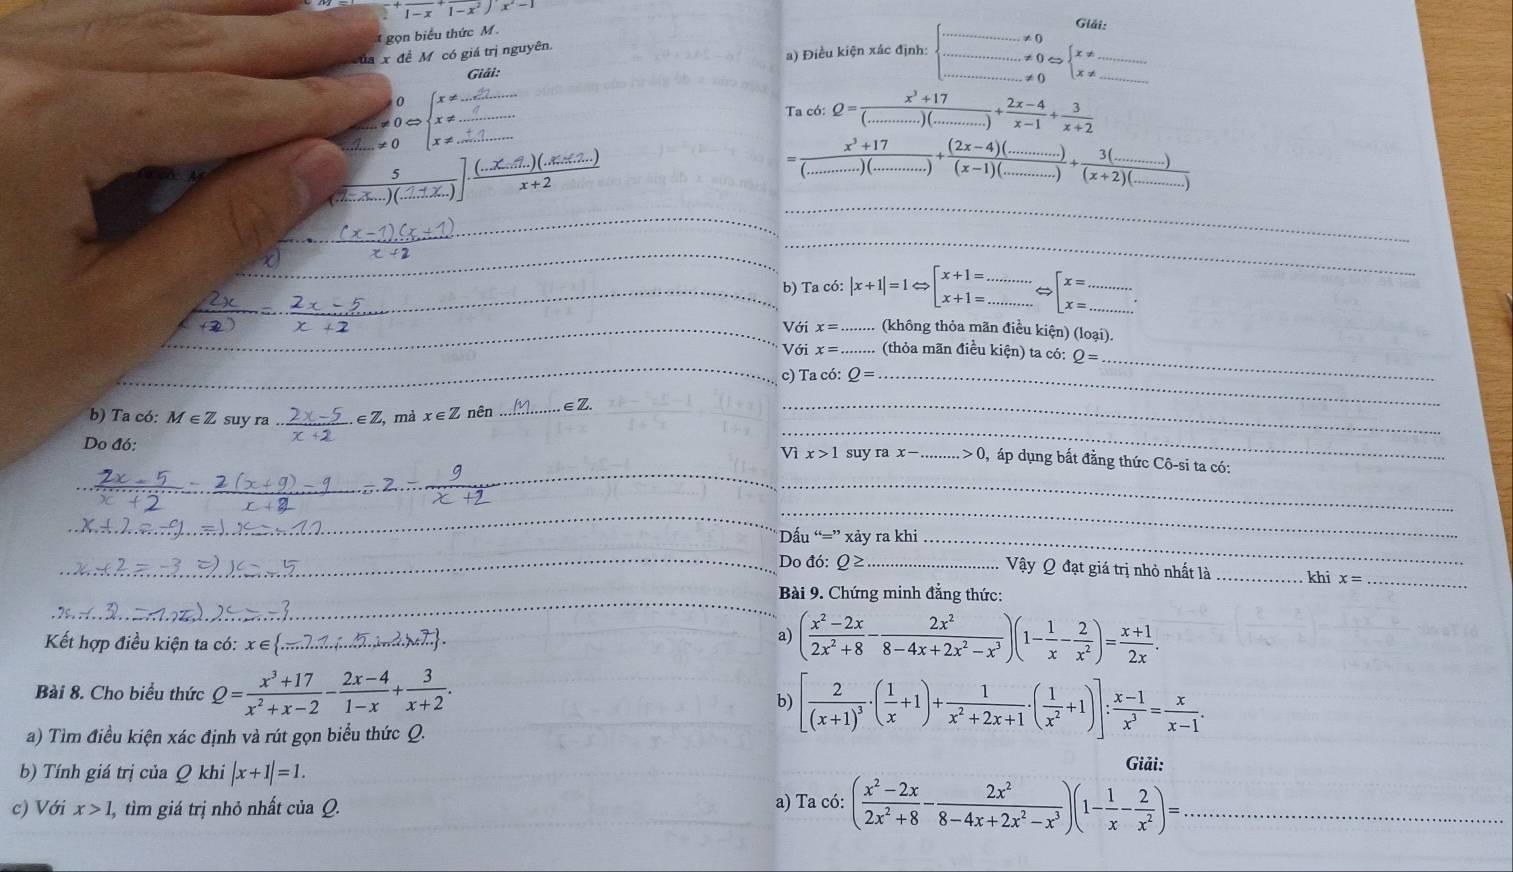 gọn biểu thức M.
x để M có giá trị nguyên.
Giải:
0 { x ≠ ............
≠ 0 ⇔ x ≠ ............
..1.. ≠ 0 x ≠ ..+1..
5/(..1-x..)(..1+x..)]·(..x-1..)(..x+1..)/(x+2)
(x-1)(x+1)/(x+2)
= (2x-5)/(x+2)
b) Ta có: M ∈ ℤ suy ra (2x-5)/(x+2) ∈ ℤ, mà x ∈ ℤ nên ..M.. ∈ ℤ.
Do đó:
(2x-5)/(x+2) = = 2 - 9/(x+2)
x+2 = -9 => x = -11
x+2 = -3 => x = -5
=> x = -3
Kết hợp điều kiện ta có: x ∈ {............}.
Bài 8. Cho biểu thức Q = (x³+17)/(x²+x-2) - (2x-4)/(1-x) + 3/(x+2).
a) Tìm điều kiện xác định và rút gọn biểu thức Q.
b) Tính giá trị của Q khi |x+1| = 1.
c) Với x > 1, tìm giá trị nhỏ nhất của Q.
Giải:
a) Điều kiện xác định: { ............ ≠ 0
............ ≠ 0 ⇔ { x ≠ ............
............ ≠ 0 x ≠ ............
Ta có: Q = (x³+17)/(............)(............) + (2x-4)/(x-1) + 3/(x+2)
= (x³+17)/(............)(............) + (2x-4)(............)/(x-1)(............) + 3(............)/(x+2)(............)
b) Ta có: |x+1| = 1 ⇔ [ x+1 = ............ ⇔ [ x = ............
x+1 = ............ x = ............ .
Với x = ........ (không thỏa mãn điều kiện) (loại).
Với x = ........ (thỏa mãn điều kiện) ta có: Q = ............
c) Ta có: Q = ............
Vì x > 1 suy ra x - ........ > 0, áp dụng bất đẳng thức Cô-si ta có:
Dấu “=” xảy ra khi ............
Do đó: Q ≥ ............ Vậy Q đạt giá trị nhỏ nhất là ............ khi x = ............
Bài 9. Chứng minh đẳng thức:
a) ((x²-2x)/(2x²+8) - 2x²/(8-4x+2x²-x³))(1 - 1/x - 2/x²) = (x+1)/2x.
b) [2/(x+1)³·(1/x+1) + 1/(x²+2x+1)·(1/x²+1)] : (x-1)/x³ = x/(x-1).
Giải:
a) Ta có: ((x²-2x)/(2x²+8) - 2x²/(8-4x+2x²-x³))(1 - 1/x - 2/x²) = ............